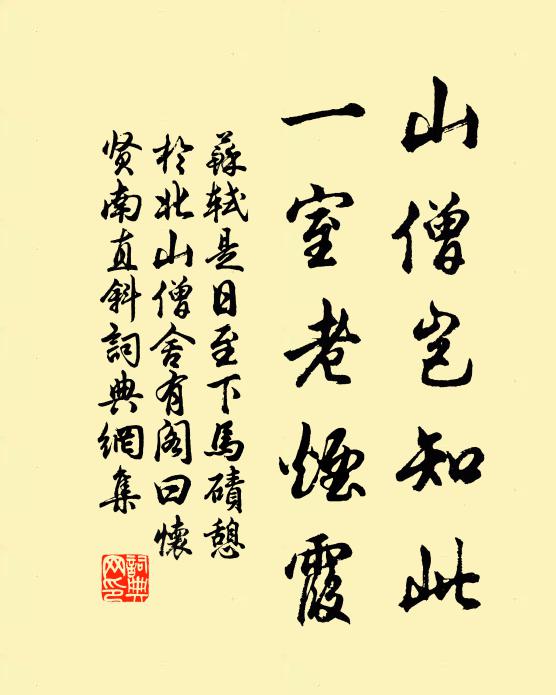 山僧岂知此
一室老煙霞
蘇軾是日至下馬磧憩
於北山僧舍有阁曰懷
贤南直斜詞典網集
詞典
网印